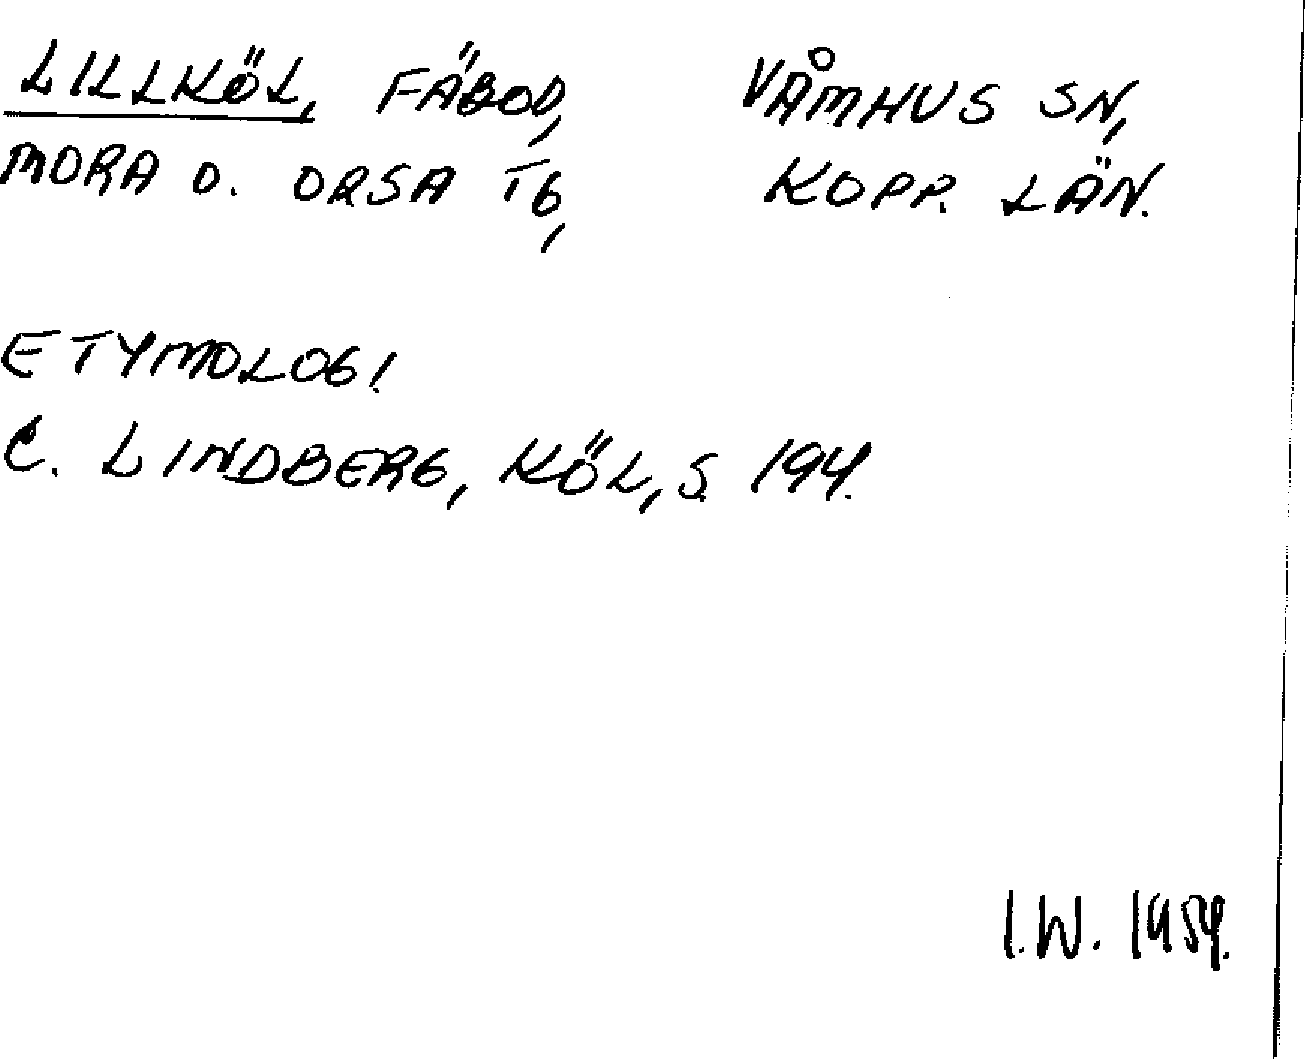 LILLKÖL, FÄBOD, VÅMHUS SN,
MORA O. ORSA TG, KOPP. LÄN.
ETYMOLOGI.
C. LINDBERG, KÖL, S. 194.
I.W. 1959.